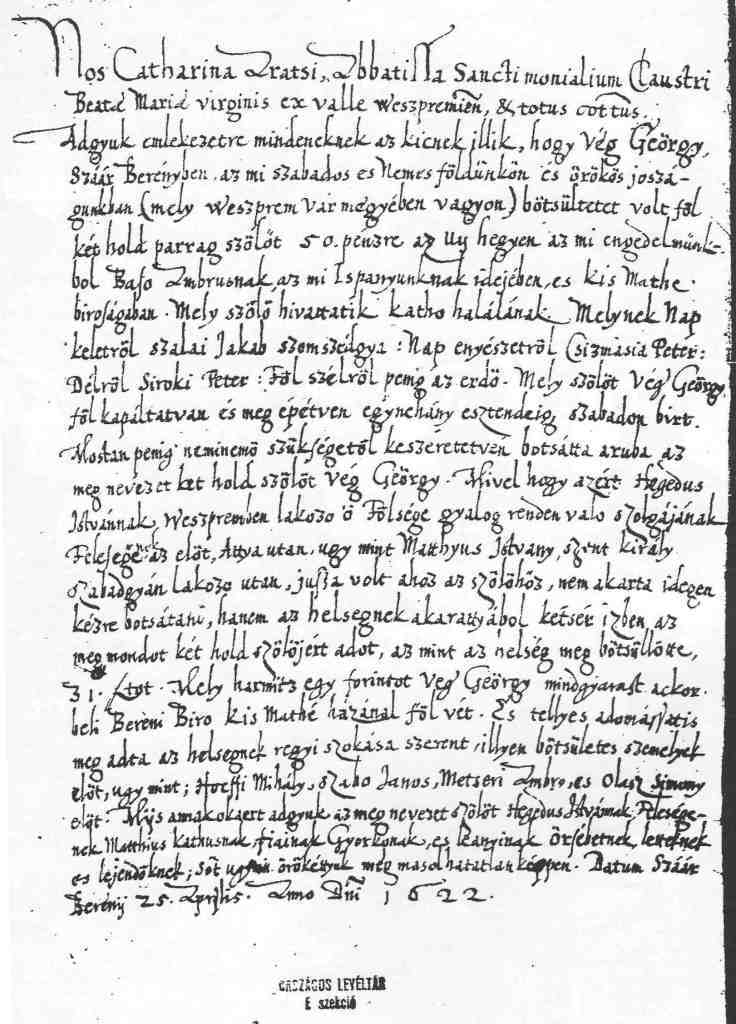 Nos Catharina Aratsi, Abbatissa Sanctimonialium Claustri
Beatæ Mariæ virginis ex valle weszpremien, & totus cottus.
Adgyuk emlekezetre mindeneknek az kicnek illik, hogy Vég Geörgy,
Száár Berényben az mi szabados es Nemes földünkön és örökös josza-
gunkban (mely Weszprem Vár megyében vagyon) bötsültetet volt föl
két hold parrag szölöt 50. penzre az Uy hegyen az mi engedelmünk-
böl Baso Ambrusnak, az mi Ispanyunknak idejében, es kis Mathe
birosagaban. Mely szölö hivattatik katho halálának. Melynek Nap
keletröl szalai Jakab szomszedgya: Nap enyészetröl Csizmasia Peter:
Délröl Siroki Peter: Föl szélröl penig az erdö. Mely szölöt Vég Geörgy
föl kapáltatvan és meg epétven egynehány esztendeig szabadon birt.
Mostan penig neminemö szükségetöl keszeretetven botsátta aruba az
meg nevezet két hold szölöt Vég Geörgy. Mivel hogy azért Hegedus
Istvánnak, Weszpremben lakozo ö Fölsége gyalog renden valo szolgájának
Felesege az elöt, Attya utan, ugy mint Matthyus Istvany, szent király
szabadgyán lakozo utan, jussa volt ahoz az szölöhöz, nem akarta idegen
kézre botsátani, hanem az helsegnek akarattyából kétsér izben, az
meg mondot két hold szölöjért adot, az mint az helség meg bötsüllötte,
31. ftot. Mely harmitz egy forintot Veg Geörgy mindgyarast ackor
beli Bereni Biro Kis Mathé házánal föl vét. Es tellyes adomássatis
meg adta az helsegnek regyi szokása szerent, illyen bötsületes szemelyek
elöt, ugy mint; Hoeffi Mihály, szabo Janos, Metseri Ambro, es Olasz Simony
elöt. Mijs annakokaert adgyuk az meg nevezet szölöt Hegedus Istvánnak Felesége-
nek Matthius kathusnak, fiainak Gyorkonak, es leanyinak örsebetnek, letteknek
es lejendöknek; söt ugyan örökéttyk meg masolhatatlan képpen. Datum Száár
Berény 25. Aprilis. Anno Dni 1622.
ORSZÁGOS LEVÉLTÁR
E szekció